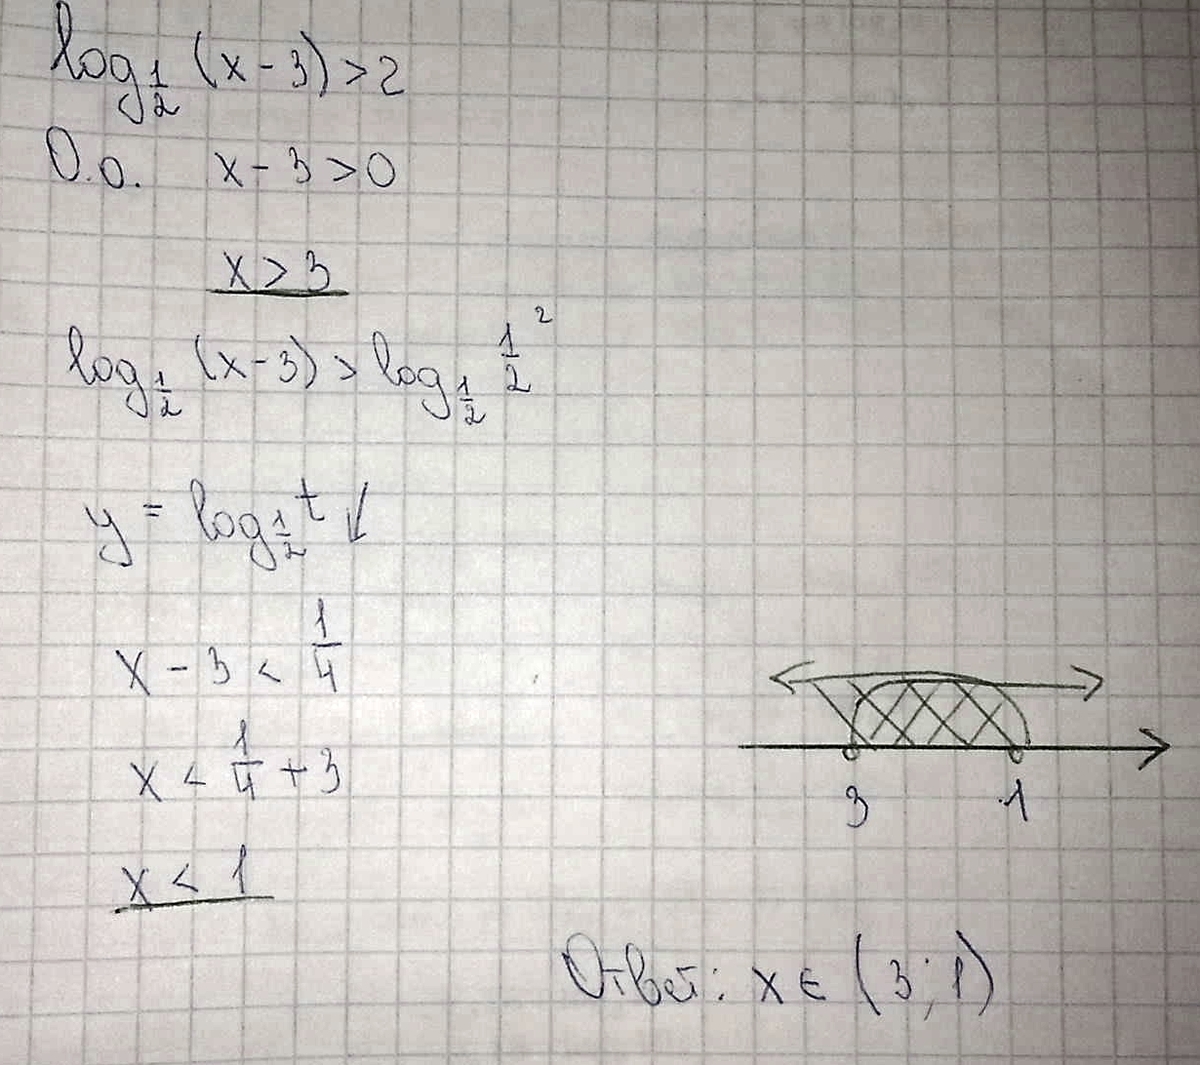 log_{1/2} (x - 3) > 2
О.о. x - 3 > 0
x > 3
log_{1/2} (x - 3) > log_{1/2} 1/2²
y = log_{1/2} t ↓
x - 3 < 1/4
x < 1/4 + 3
x < 1
3 1
Ответ: x ∈ (3; 1)